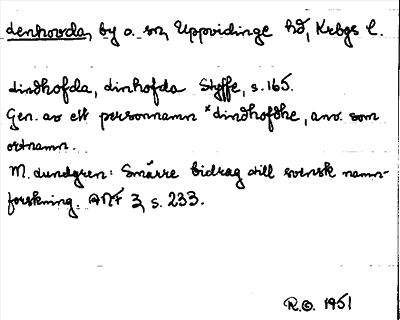 Lenhovda, by o. sn, Uppvidinge hd, Krbgs l.
Lindhofda, Linhofda Styffe, s. 165.
Gen. av ett personnamn *Lindhofdhe, anv. som
ortnamn.
M. Lundgren: Smärre bidrag till svensk namn-
forskning. ANF 3, s. 233.
R.O. 1951